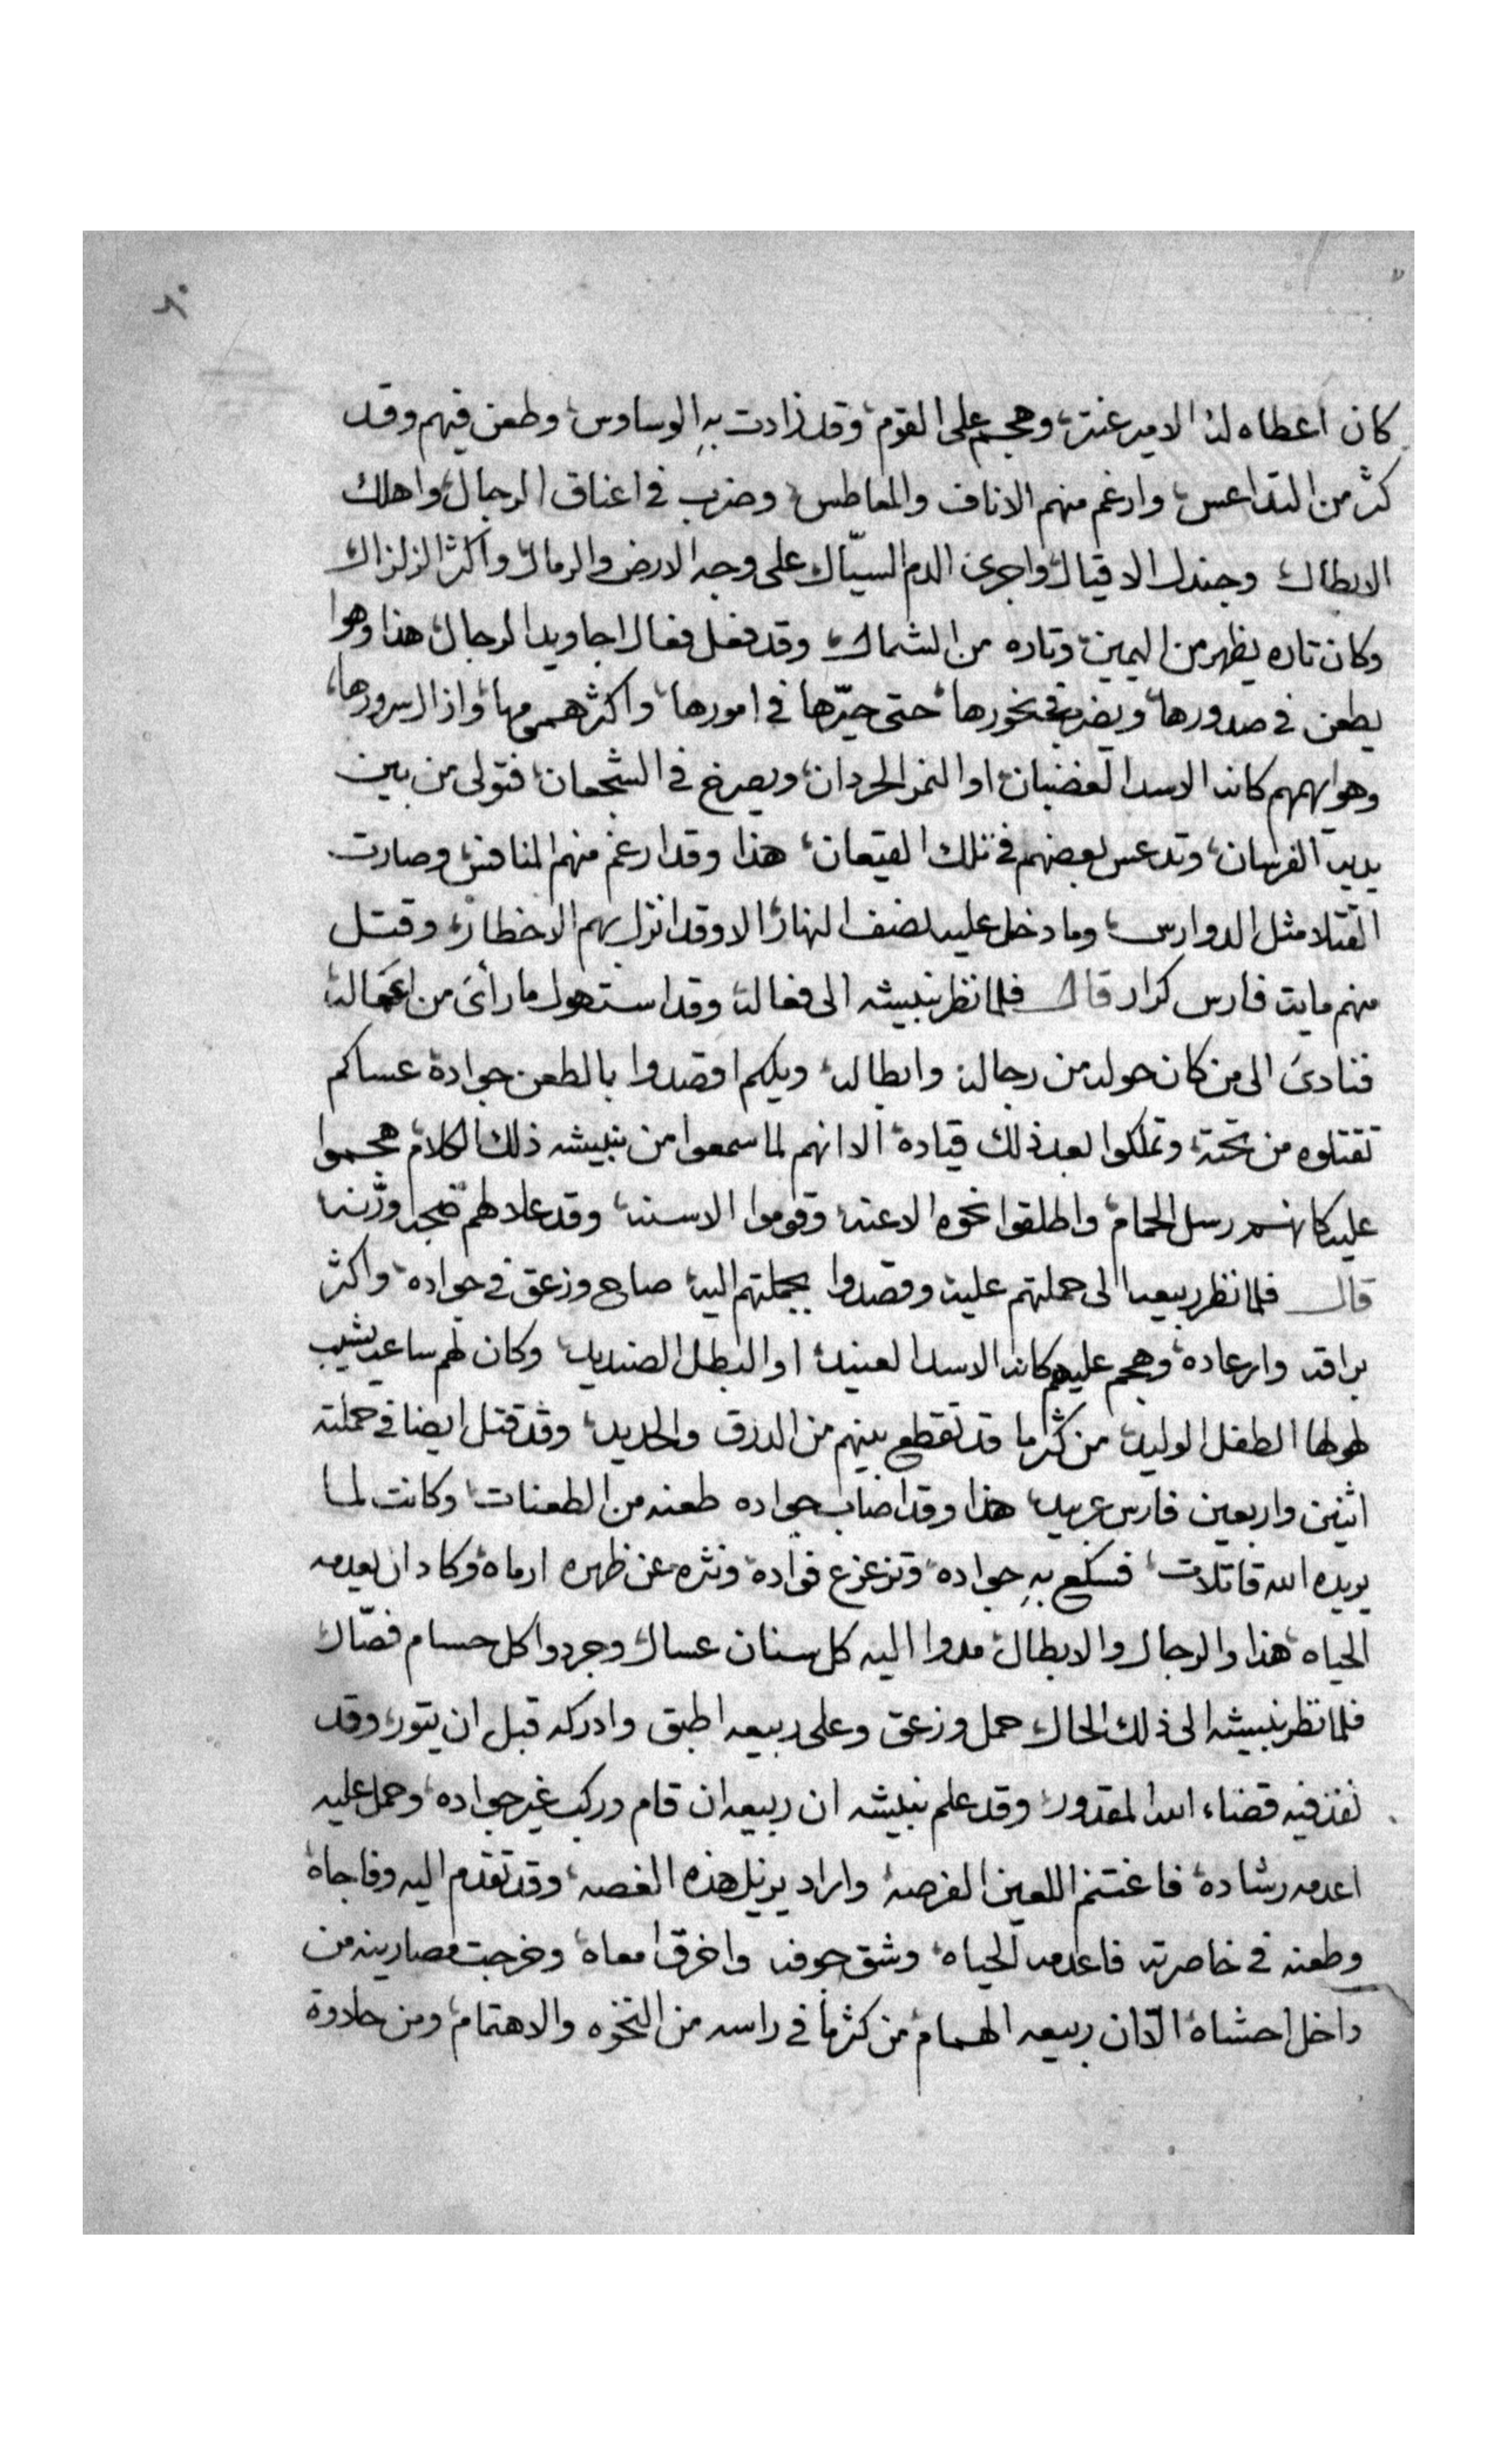 كان اعطاه له الامير عنتر، وهجم على القوم، وقد زادت بهِ الوساوس، وطعن فيهم وقد
كثر من التداعس، وارغم منهم الاناف والمعاطس، وضرب في اعناق الرجال، واهلك
الابطال، وجندل الاقيال، واجرى الدم السيّال على وجه الارض والرمال، واكثر الزلزال
وكان تاره يظهر من اليمين، وتاره من الشمال، وقد فعل فعال اجاويد الرجال، هذا وهوا
يطعن في صدورها، ويضرب في نحورها، حتى حيّرها في امورها، واكثر همومها، وازال سرورها،
وهو ايهمهم كانه الاسد الغضبان، او النمر الحردان، ويصرخ في الشجعان، فتولى من بين
يديه الفرسان، وتدعس بعضهم في تلك القيعان، هذا وقد ارغم منهم المنافس، وصارت
القتلا مثل الدوارس، وما دخل عليه نصف النهار، الا وقد انزل بهم الاخطار، وقتل
منهم مايت فارس كرار قال فلما نظر نبيشه الى فعاله، وقد استهول ما رأى من اعماله،
فنادى الى من كان حوله من رجاله وابطاله، ويلكم اقصدوا بالطعن جواده عساكم
تقتلوه من تحته، وتملكوا بعد ذلك قياده، الا انهم لما سمعوا من نبيشه ذلك الكلام، هجموا
عليه كانهم رسل الحمام، واطلقوا نحوه الاعنه، وقوموا الاسنه، وقد علا لهم ضجه ورنه
قال فلما نظر ربيعه الى حملتهم عليه، وقصدوا بجملتهم اليه، صاح وزعق في جواده، واكثر
براقه وارعاده، وهجم عليهم كانه الاسد العنيد، او البطل الصنديد، وكان لهم ساعه يشيب
لهولها الطفل الوليد، من كثر ما قد تقطع بينهم من الدرق والحديد، وقد قتل ايضا في حملته
اثنين واربعين فارس عربيد، هذا وقد اصاب جواده طعنه من الطعنات، وكانت لما
يريده الله قاتلات، فسكع بهِ جواده، وتزعزع فواده، ونثره عن ظهره ارماه، وكاد ان يعدمه
الحياه، هذا والرجال والابطال، مدوا اليه كل سنان عسال، وجردوا كل حسام فصّال
فلما نظر نبيشه الى ذلك الحال، حمل وزعق وعلى ربيعه اطبق وادركه قبل ان يثور، وقد
نفذ فيه قضاء الله المقدور، وقد علم نبيشه ان ربيعه ان قام وركب غير جواده، وحمل عليه
اعدمه رشاده، فاغتنم اللعين الفرصه، واراد يزيل هذه الغصه، وقد تقدم اليه وفاجاه
وطعنه في خاصرته فاعدمه الحياه، وشق جوفه واخرق امعاه، وخرجت مصارينه من
داخل احشاه، الّا ان ربيعه الهمام، من كثر ما في راسه من النخوه والاهتمام، ومن حلاوة